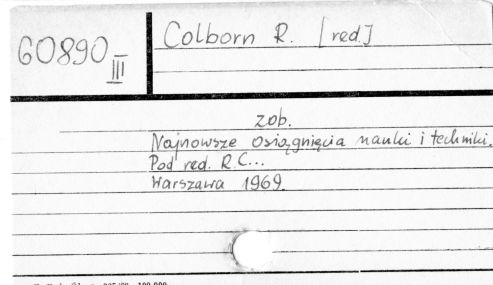 60890
III
Colborn R. [red]
zob.
Najnowsze osiągnięcia nauki i techniki.
Pod red. R.C...
Warszawa 1969.
100.000